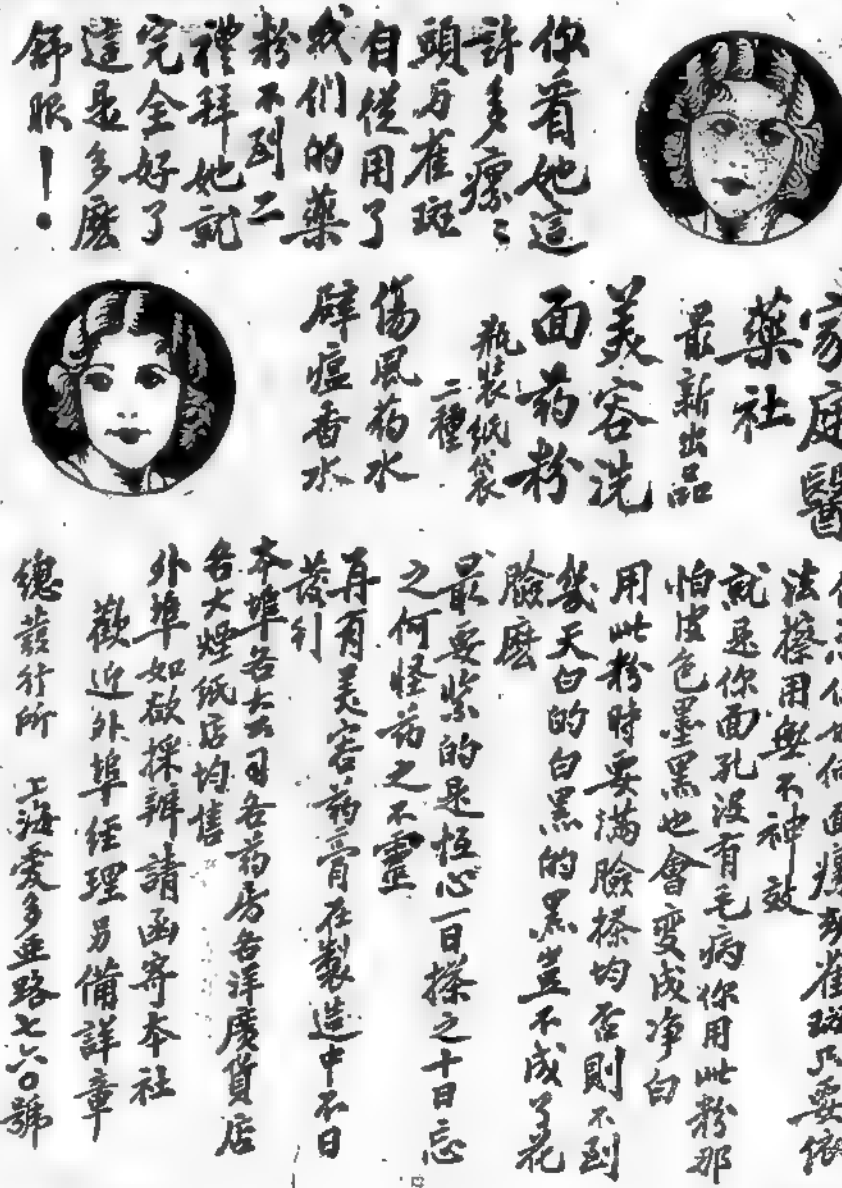 你看她這
許多瘰〻
頭与雀斑
自從用了
我们的藥
粉不到二
禮拜她就
完全好了
這是多麽
舒服！
家庭醫
藥社
最新出品
美容洗
面药粉
瓶裝纸袋
二種
傷風药水
辟瘟香水
何面 雀斑只要依
法擦用無不神效
就是你面孔没有毛病你用此粉那
怕皮色墨黑也會变成净白
用此粉時要满臉搽均否則不到
幾天白的白黑的黑豈不成了花
臉麽
最要紧的是恆心一日搽之十日忘
之何怪药之不靈
再有美容药膏在製造中不日
發行
本埠各大公司各药房各洋廣貨店
各大煙纸店均售
外埠如欲採辦請函寄本社
歡迎外埠经理另備詳章
總發行所 上海愛多亚路七六〇號